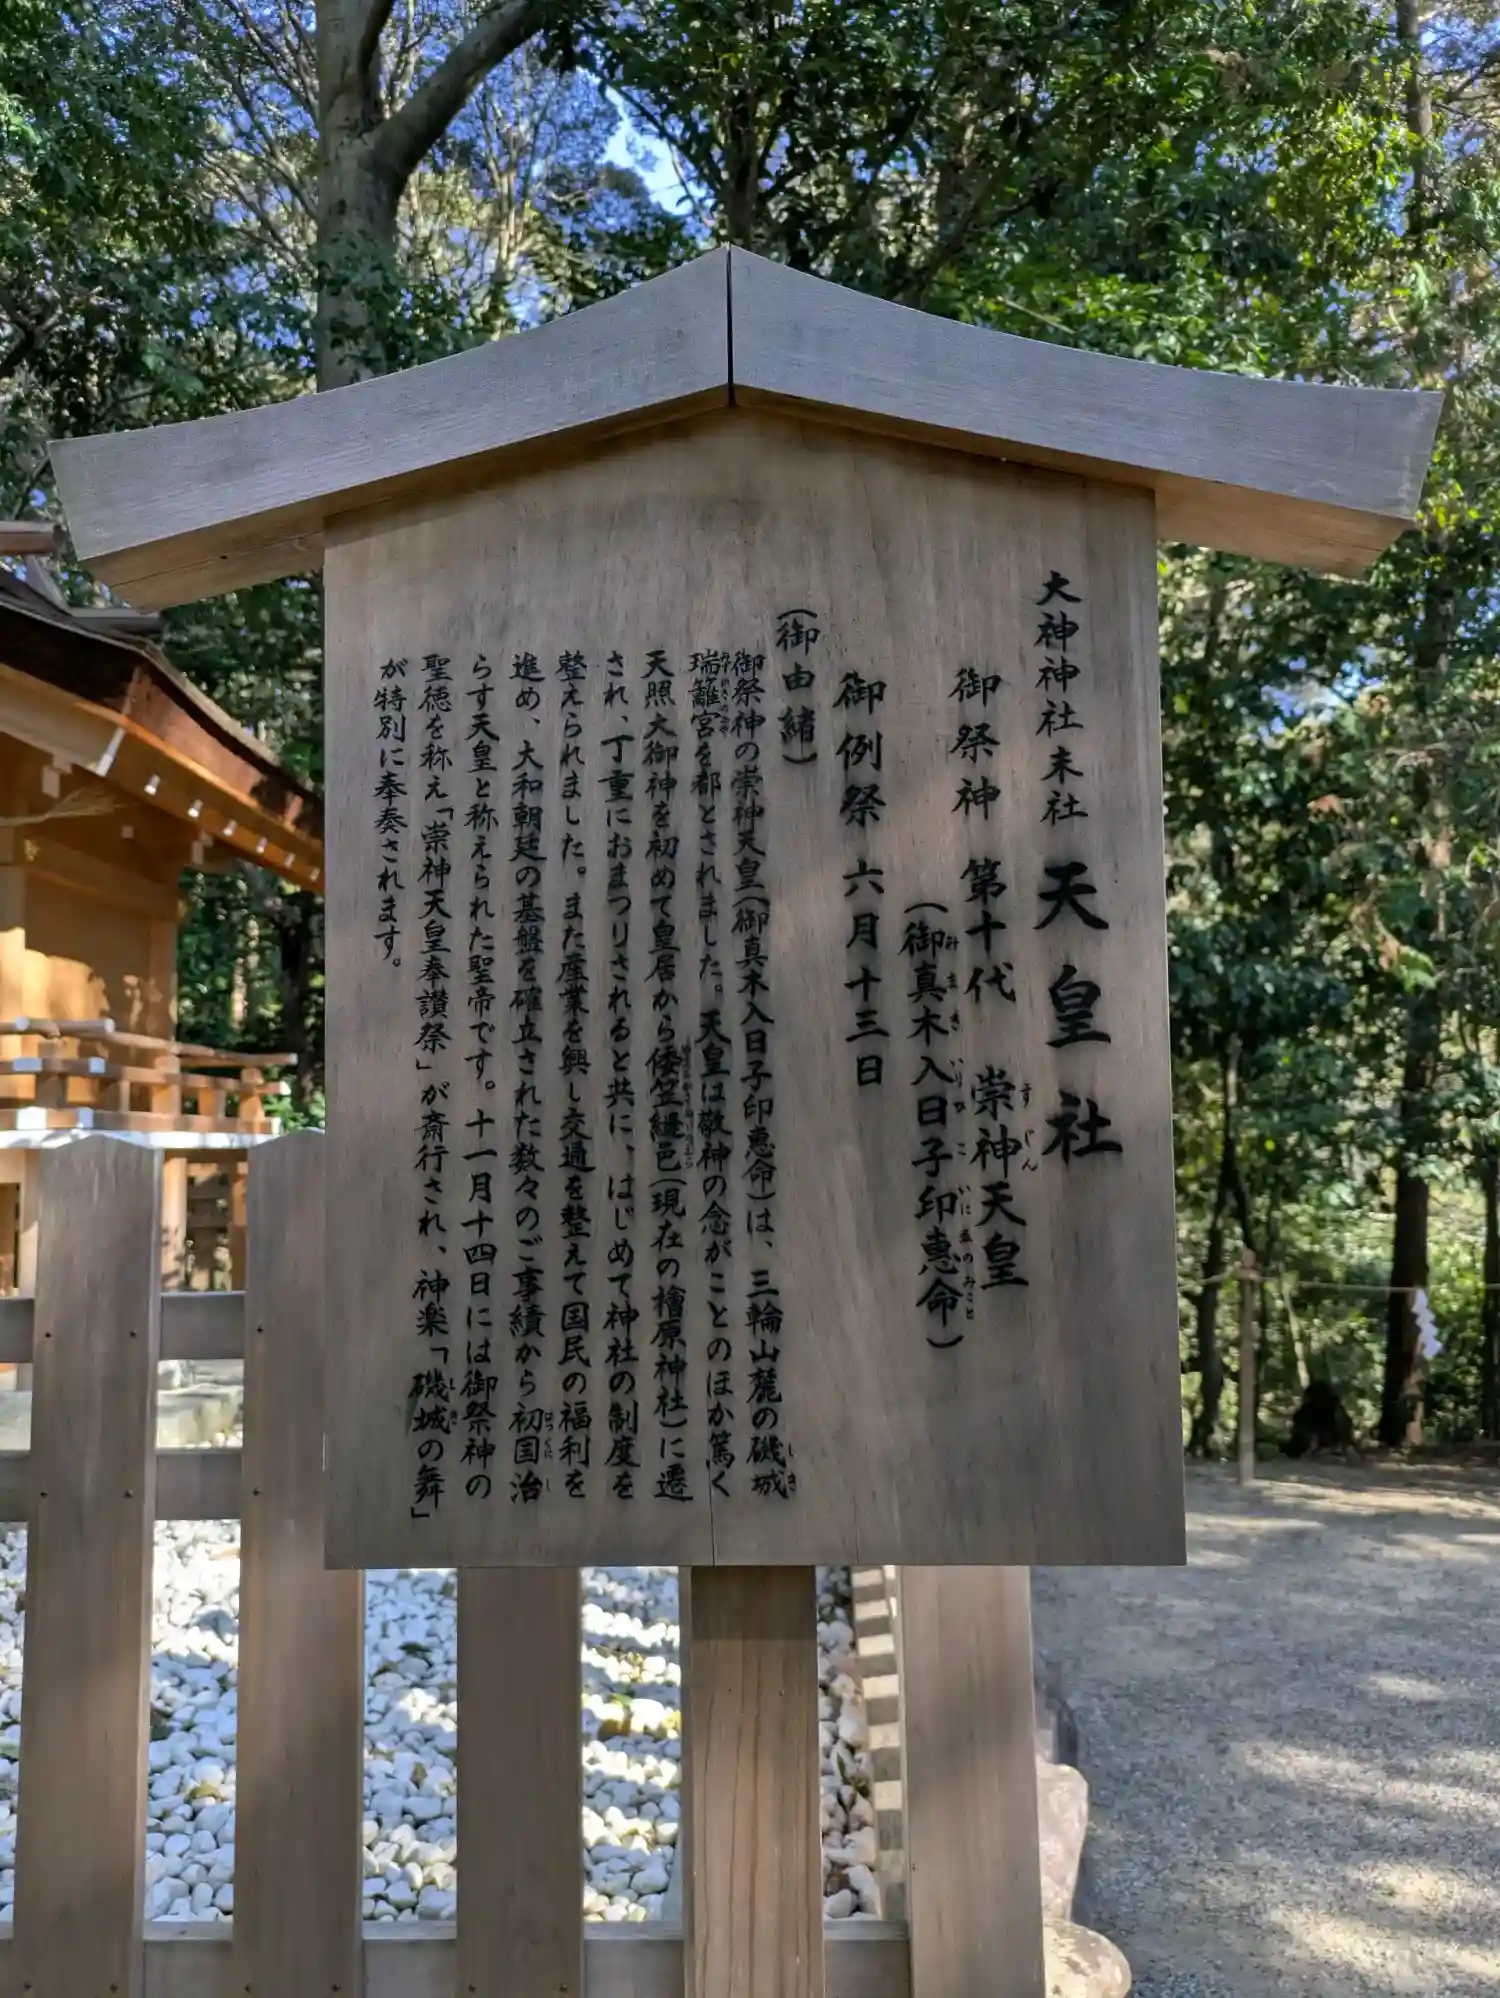 大神神社末社 天皇社
御祭神 第十代 崇神天皇
(御真木入日子印恵命)
御例祭 六月十三日
(御由緒)
御祭神の崇神天皇(御真木入日子印恵命)は、三輪山麓の磯城
瑞籬宮を都とされました。天皇は敬神の念がことのほか篤く
天照大御神を初めて皇居から倭笠縫邑(現在の檜原神社)に遷
され、丁重におまつりされると共に、はじめて神社の制度を
整えられました。また産業を興し交通を整えて国民の福利を
進め、大和朝廷の基盤を確立された数々のご事績から初国治
らす天皇と称えられた聖帝です。十一月十四日には御祭神の
聖徳を称え「崇神天皇奉讃祭」が斎行され、神楽「磯城の舞」
が特別に奉奏されます。